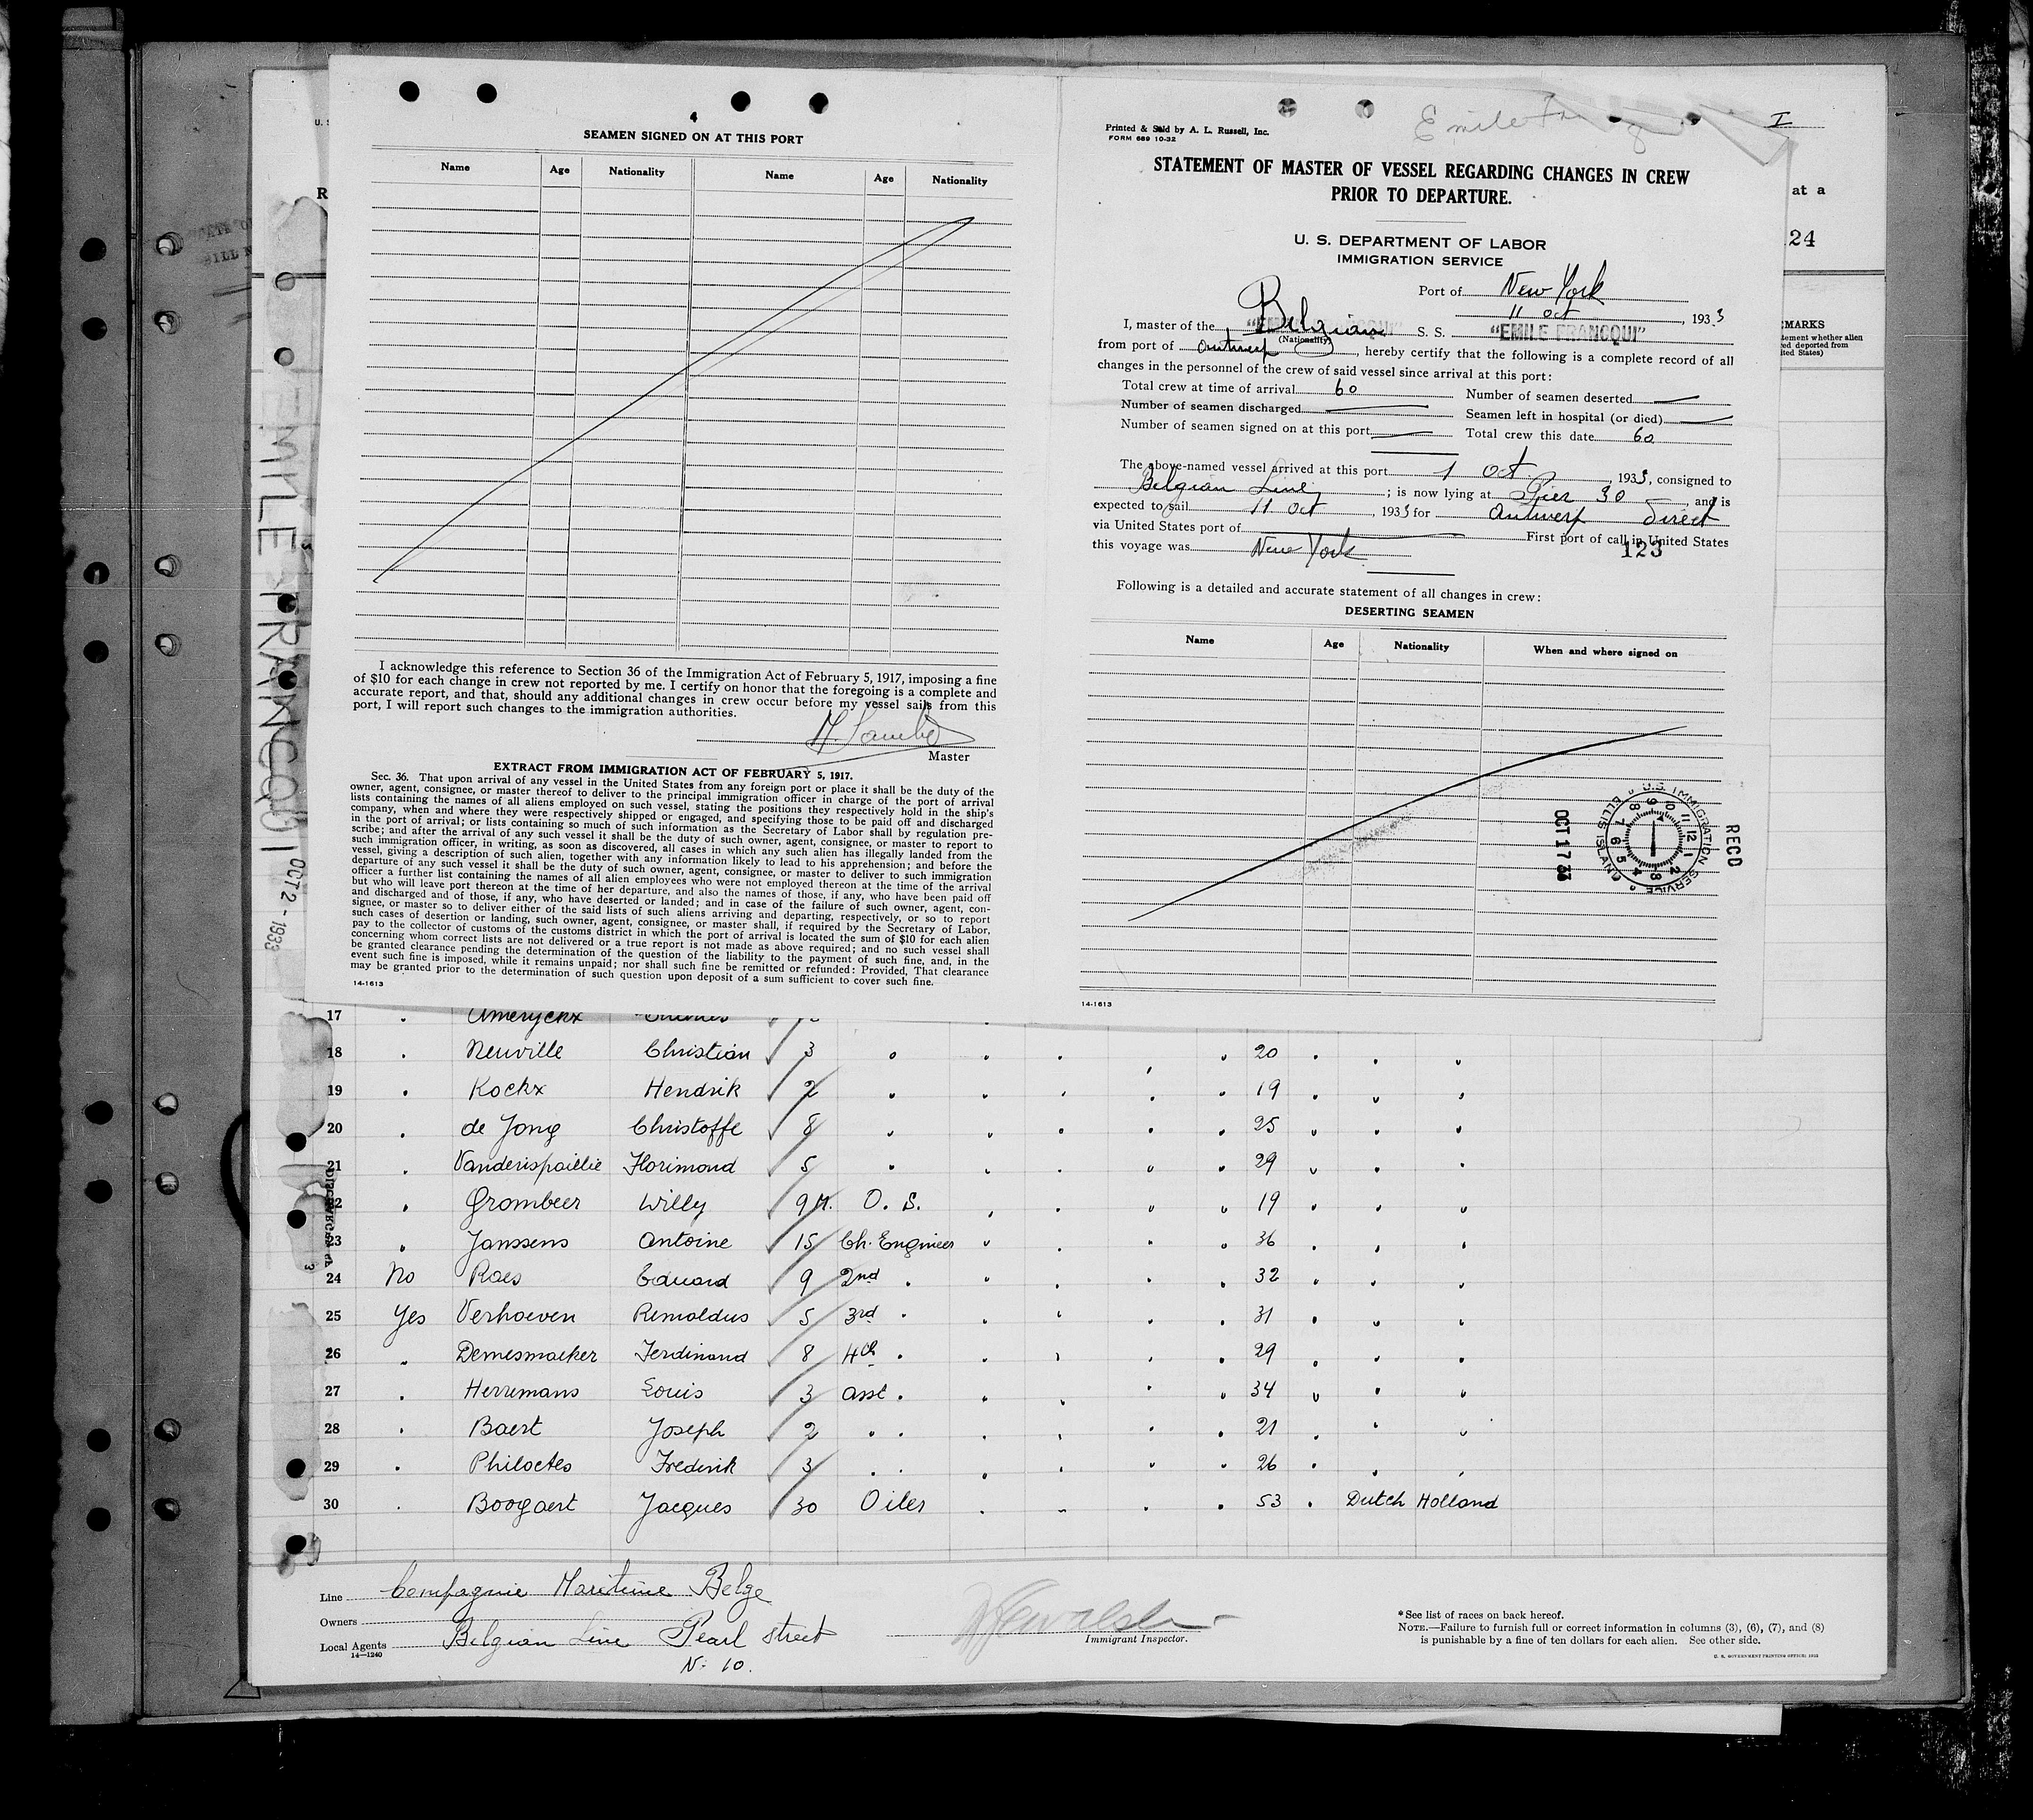 4
SEAMEN SIGNED ON AT THIS PORT
Name Age Nationality Name Age Nationality
I acknowledge this reference to Section 36 of the Immigration Act of February 5, 1917, imposing a fine
of $10 for each change in crew not reported by me. I certify on honor that the foregoing is a complete and
accurate report, and that, should any additional changes in crew occur before my vessel sails from this
port, I will report such changes to the immigration authorities.
Master
EXTRACT FROM IMMIGRATION ACT OF FEBRUARY 5, 1917.
Sec. 36. That upon arrival of any vessel in the United States from any foreign port or place it shall be the duty of the
owner, agent, consignee, or master thereof to deliver to the principal immigration officer in charge of the port of arrival
lists containing the names of all aliens employed on such vessel, stating the positions they respectively hold in the ship's
company, when and where they were respectively shipped or engaged, and specifying those to be paid off and discharged
in the port of arrival; or lists containing so much of such information as the Secretary of Labor shall by regulation pre-
scribe; and after the arrival of any such vessel it shall be the duty of such owner, agent, consignee, or master to report to
such immigration officer, in writing, as soon as discovered, all cases in which any such alien has illegally landed from the
vessel, giving a description of such alien, together with any information likely to lead to his apprehension; and before the
departure of any such vessel it shall be the duty of such owner, agent, consignee, or master to deliver to such immigration
officer a further list containing the names of all alien employees who were not employed thereon at the time of the arrival
but who will leave port thereon at the time of her departure, and also the names of those, if any, who have been paid off
and discharged and of those, if any, who have deserted or landed; and in case of the failure of such owner, agent, con-
signee, or master so to deliver either of the said lists of such aliens arriving and departing, respectively, or so to report
such cases of desertion or landing, such owner, agent, consignee, or master shall, if required by the Secretary of Labor,
pay to the collector of customs of the customs district in which the port of arrival is located the sum of $10 for each alien
concerning whom correct lists are not delivered or a true report is not made as above required; and no such vessel shall
be granted clearance pending the determination of the question of the liability to the payment of such fine, and, in the
event such fine is imposed, while it remains unpaid; nor shall such fine be remitted or refunded: Provided, That clearance
may be granted prior to the determination of such question upon deposit of a sum sufficient to cover such fine.
14-1613
Emile
I
Printed & Sold by A. L. Russell, Inc.
FORM 689 10-32
STATEMENT OF MASTER OF VESSEL REGARDING CHANGES IN CREW
PRIOR TO DEPARTURE.
U. S. DEPARTMENT OF LABOR
IMMIGRATION SERVICE
Port of New York
11 oct, 1933
I, master of the Belgian S. S. "EMILE FRANCQUI"
(Nationality)
from port of Antwerp, hereby certify that the following is a complete record of all
changes in the personnel of the crew of said vessel since arrival at this port:
Total crew at time of arrival 60 Number of seamen deserted
Number of seamen discharged Seamen left in hospital (or died)
Number of seamen signed on at this port Total crew this date 60
The above-named vessel arrived at this port 1 oct, 1933, consigned to
Belgian Line; is now lying at Pier 30 and is
expected to sail 11 Oct, 1933 for Antwerp Direct
via United States port of First port of call in United States
this voyage was New York 123
Following is a detailed and accurate statement of all changes in crew:
DESERTING SEAMEN
Name Age Nationality When and where signed on
RECD
U.S. IMMIGRATION SERVICE ELLIS ISLAND
OCT 17 33
14-1613
at a
24
EMARKS
EMILE FRANCQUI
OCT 2 - 1933
17 " Ameryckx
18 " Neuville Christian 3 " " " " 20 " " "
19 " Kockx Hendrik 2 " " " " " 19 " " "
20 " de Jong Christoffe 8 " " " " " 25 " " "
21 " Vanderispaillie Florimond 5 " " " " " 29 " " "
22 " Grombeer Willy 9 M. O. S. " " " " 19 " " "
23 " Janssens Antoine 15 Ch. Engineer " " " " 36 " " "
24 No Raes Eduard 9 2nd " " " " " 32 " " "
25 Yes Verhoeven Remoldus 5 3rd " " " " " 31 " " "
26 " Demesmaeker Ferdinand 8 4th " " " " " 29 " " "
27 " Herremans Louis 3 asst " " " " " 34 " " "
28 " Baert Joseph 2 " " " " " " 21 " " "
29 " Philoctes Frederik 3 " " " " " " 26 " " "
30 " Boogaert Jacques 30 Oiler " " " " 53 " Dutch Holland
Line Compagnie Maritime Belge
Owners
Local Agents Belgian Line Pearl street
14—1240
N: 10.
Immigrant Inspector.
*See list of races on back hereof.
NOTE.—Failure to furnish full or correct information in columns (3), (6), (7), and (8)
is punishable by a fine of ten dollars for each alien. See other side.
U. S. GOVERNMENT PRINTING OFFICE: 1932